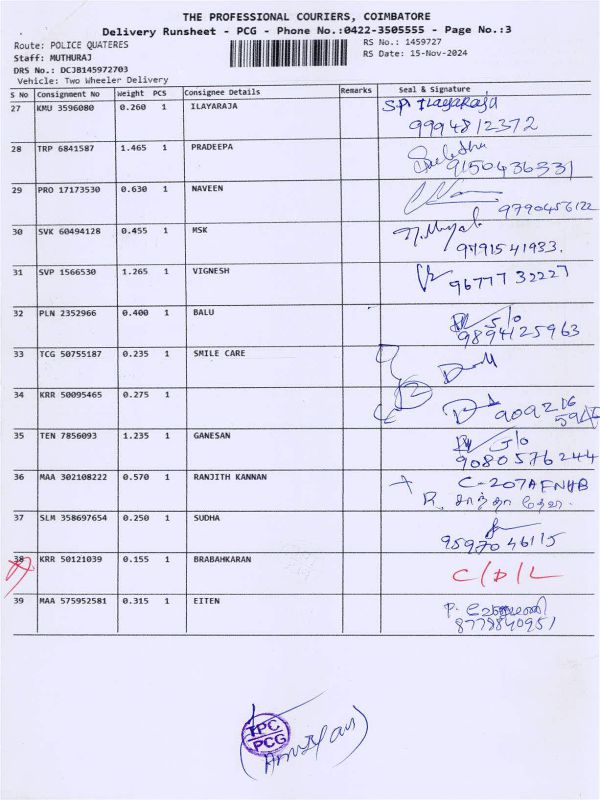 THE PROFESSIONAL COURIERS, COIMBATORE
Delivery Runsheet - PCG - Phone No.:0422-3505555 - Page No.:3
Route: POLICE QUATERES RS No.: 1459727
Staff: MUTHURAJ RS Date: 15-Nov-2024
DRS No.: DCJB145972703
Vehicle: Two Wheeler Delivery
S No Consignment No Weight PCS Consignee Details Remarks Seal & Signature
27 KMU 3596080 0.260 1 ILAYARAJA SP Ilayaraja
9994812372
28 TRP 6841587 1.465 1 PRADEEPA
9150436331
29 PRO 17173530 0.630 1 NAVEEN
9790456122
30 SVK 60494128 0.455 1 MSK
9791541933.
31 SVP 1566530 1.265 1 VIGNESH
9677732227
32 PLN 2352966 0.400 1 BALU S/o
9894125963
33 TCG 50755187 0.235 1 SMILE CARE
34 KRR 50095465 0.275 1
909216
35 TEN 7856093 1.235 1 GANESAN G/o
9080576244
36 MAA 302108222 0.570 1 RANJITH KANNAN C-207AFNHB
R.
37 SLM 358697654 0.250 1 SUDHA
9597046115
38 KRR 50121039 0.155 1 BRABAHKARAN C/D/L
39 MAA 575952581 0.315 1 EITEN P.
8778840951
TPC
PCG